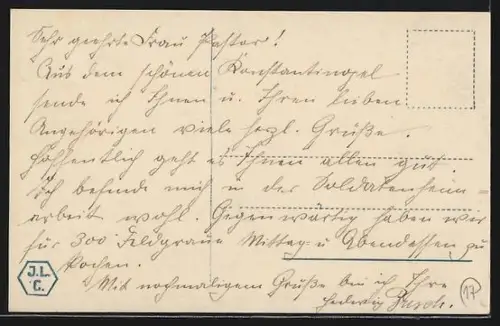 Sehr geehrte Frau Pastor!
Aus dem schönen Konstantinopel
sende ich Ihnen u. Ihren lieben
Angehörigen viele herzl. Grüße.
Hoffentlich geht es Ihnen allen gut
Ich befinde mich in der Soldatenheim-
arbeit wohl. Gegenwärtig haben wir
für 300 Feldgraue Mittag- u. Abendessen zu
kochen.
Mit nochmaligem Gruße bin ich Ihre
Hedwig
J.L.
C.
17